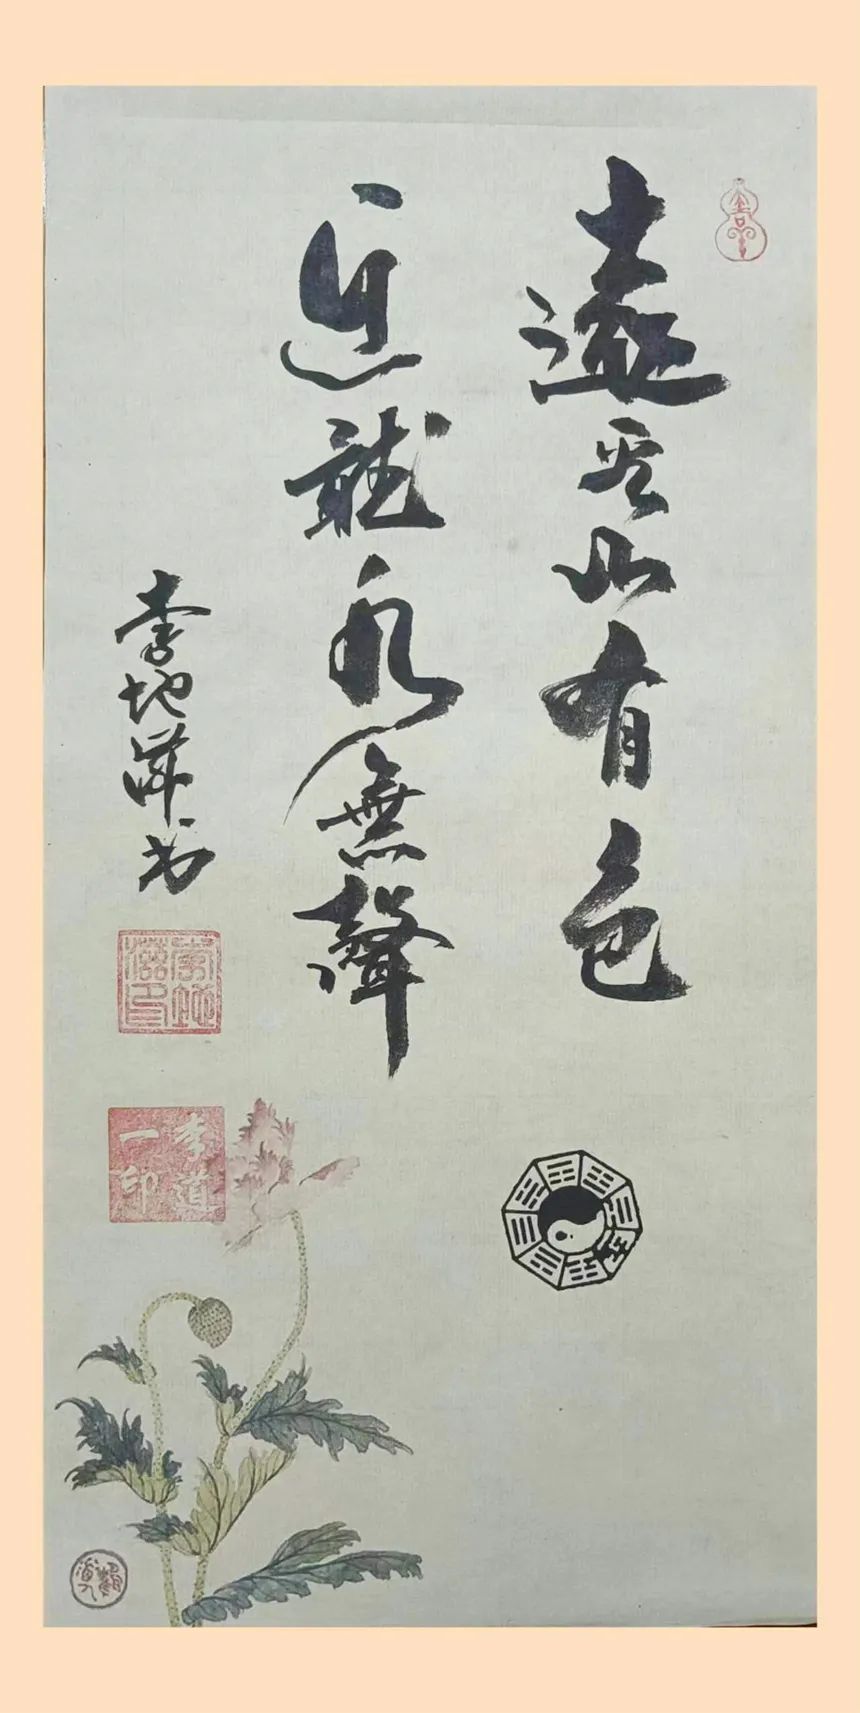 遠看山有色
近聽水無聲
李地书
李道一印